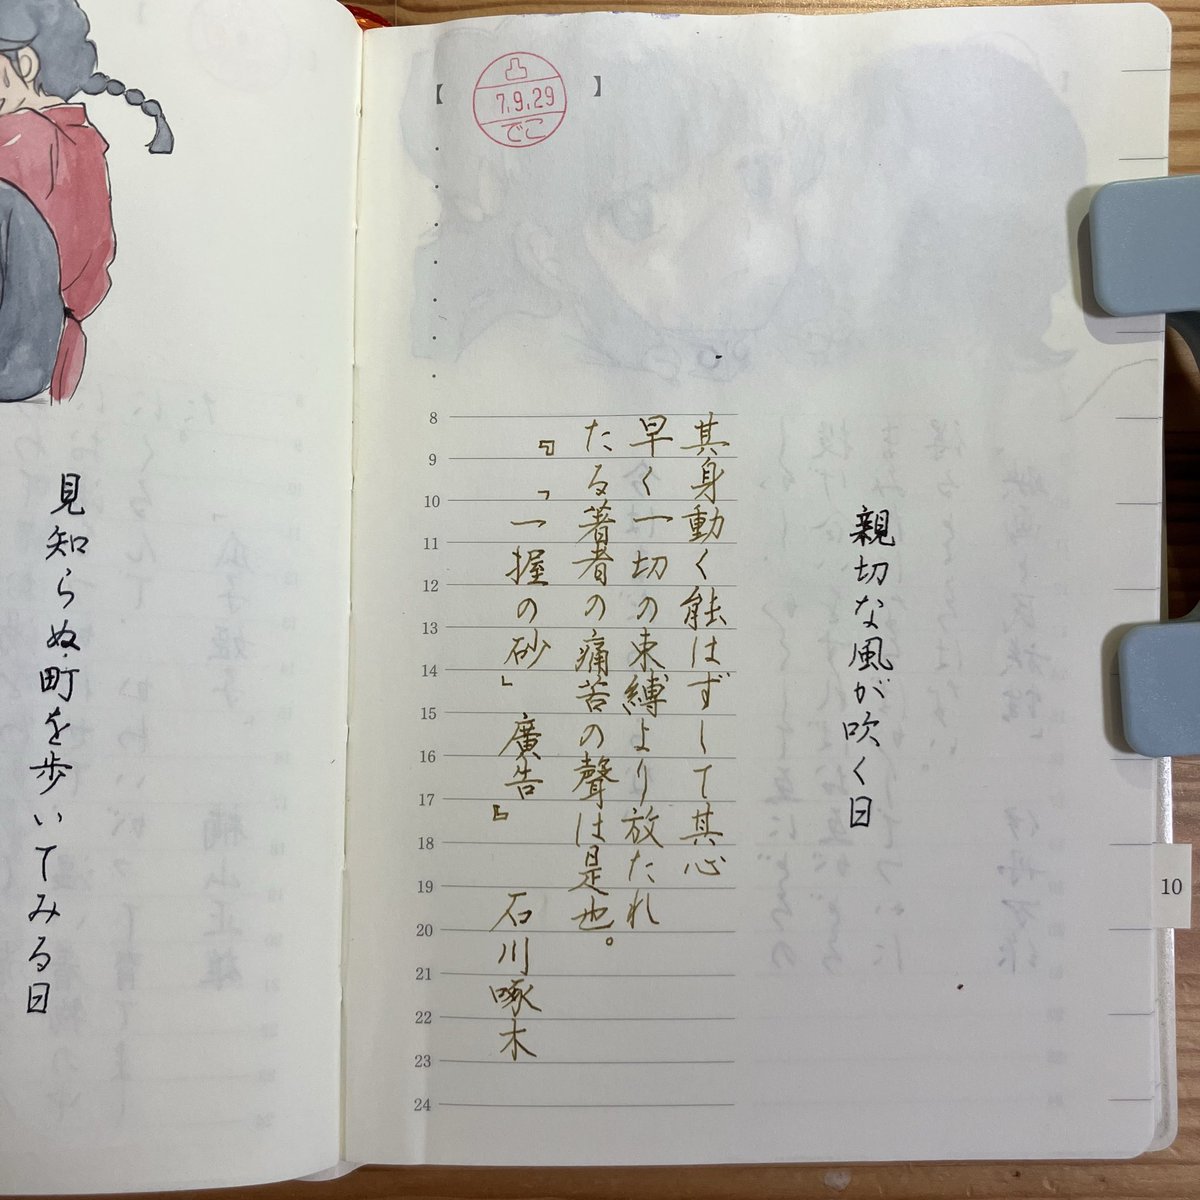 凸
7.9.29
でこ
【
】
親切な風が吹く日
其身動く能はずして其心
早く一切の束縛より放たれ
たる著者の痛苦の聲は是也。
『「一握の砂」廣告』 石川啄木
見知らぬ町を歩いてみる日
8
9
10
11
12
13
14
15
16
17
18
19
20
21
22
23
24
10